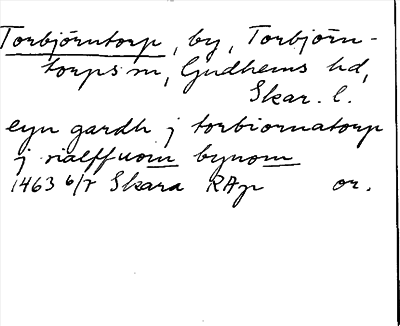 Torbjörntorp, by, Torbjörn-
torps sn, Gudhems hd,
Skar. l.
eyn gardh j torbiornatorp
j sialffuom bynom
1463 6/7 Skara RAp or.